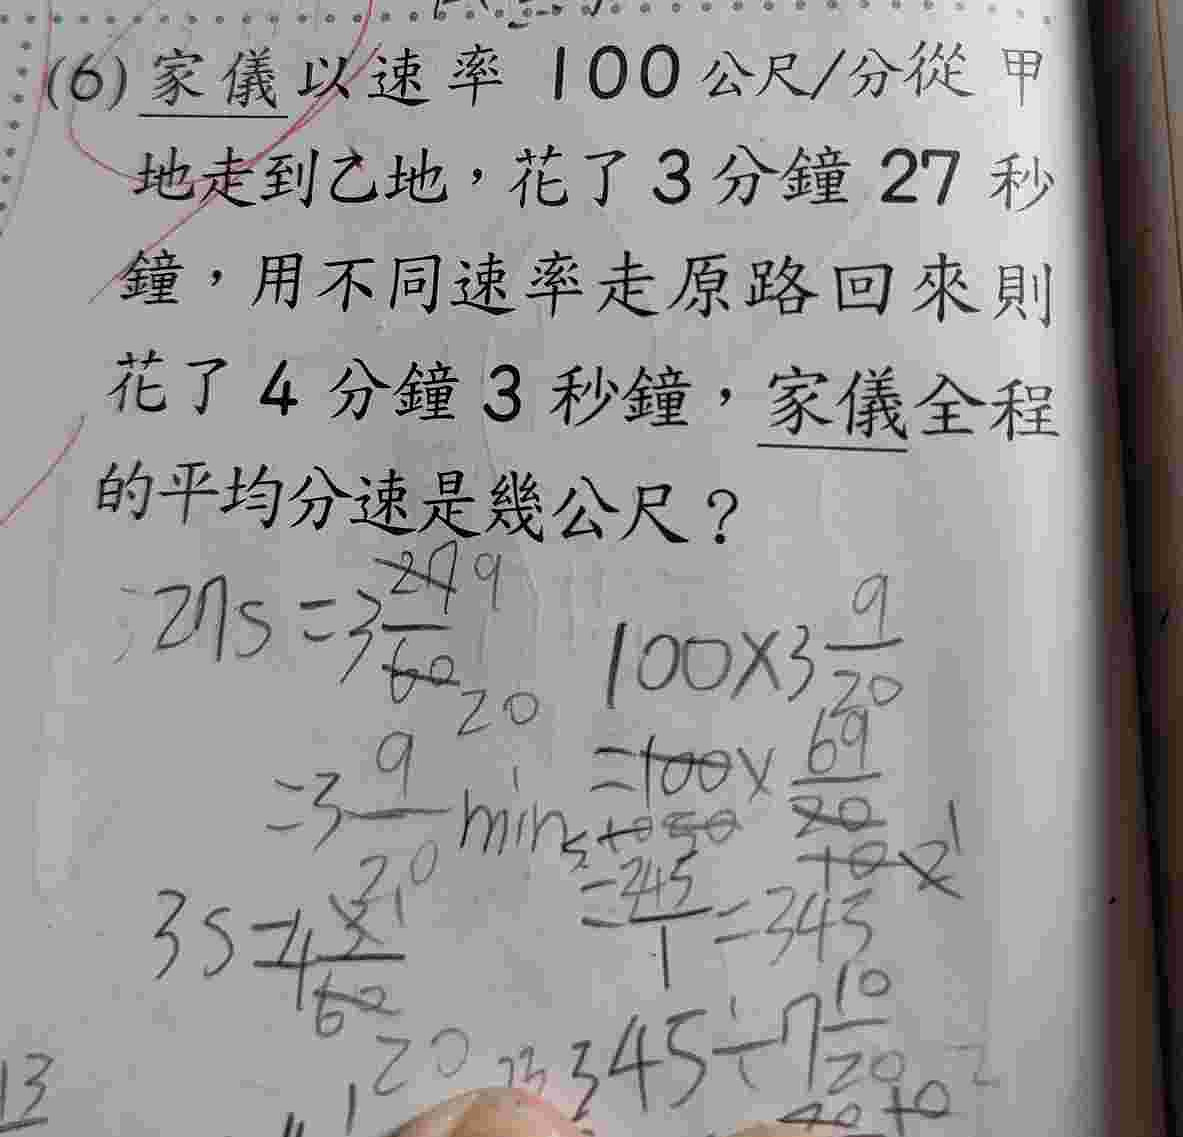 (6)家儀以速率 100公尺/分從甲
地走到乙地，花了3分鐘27秒
鐘，用不同速率走原路回來則
花了4分鐘3秒鐘，家儀全程
的平均分速是幾公尺？
27s=3 27/60 9 20
=3 9/20 min
3s=4 3/60 1 20
100×3 9/20
=100× 69/20
=345/1=345
345÷7 10/20
13